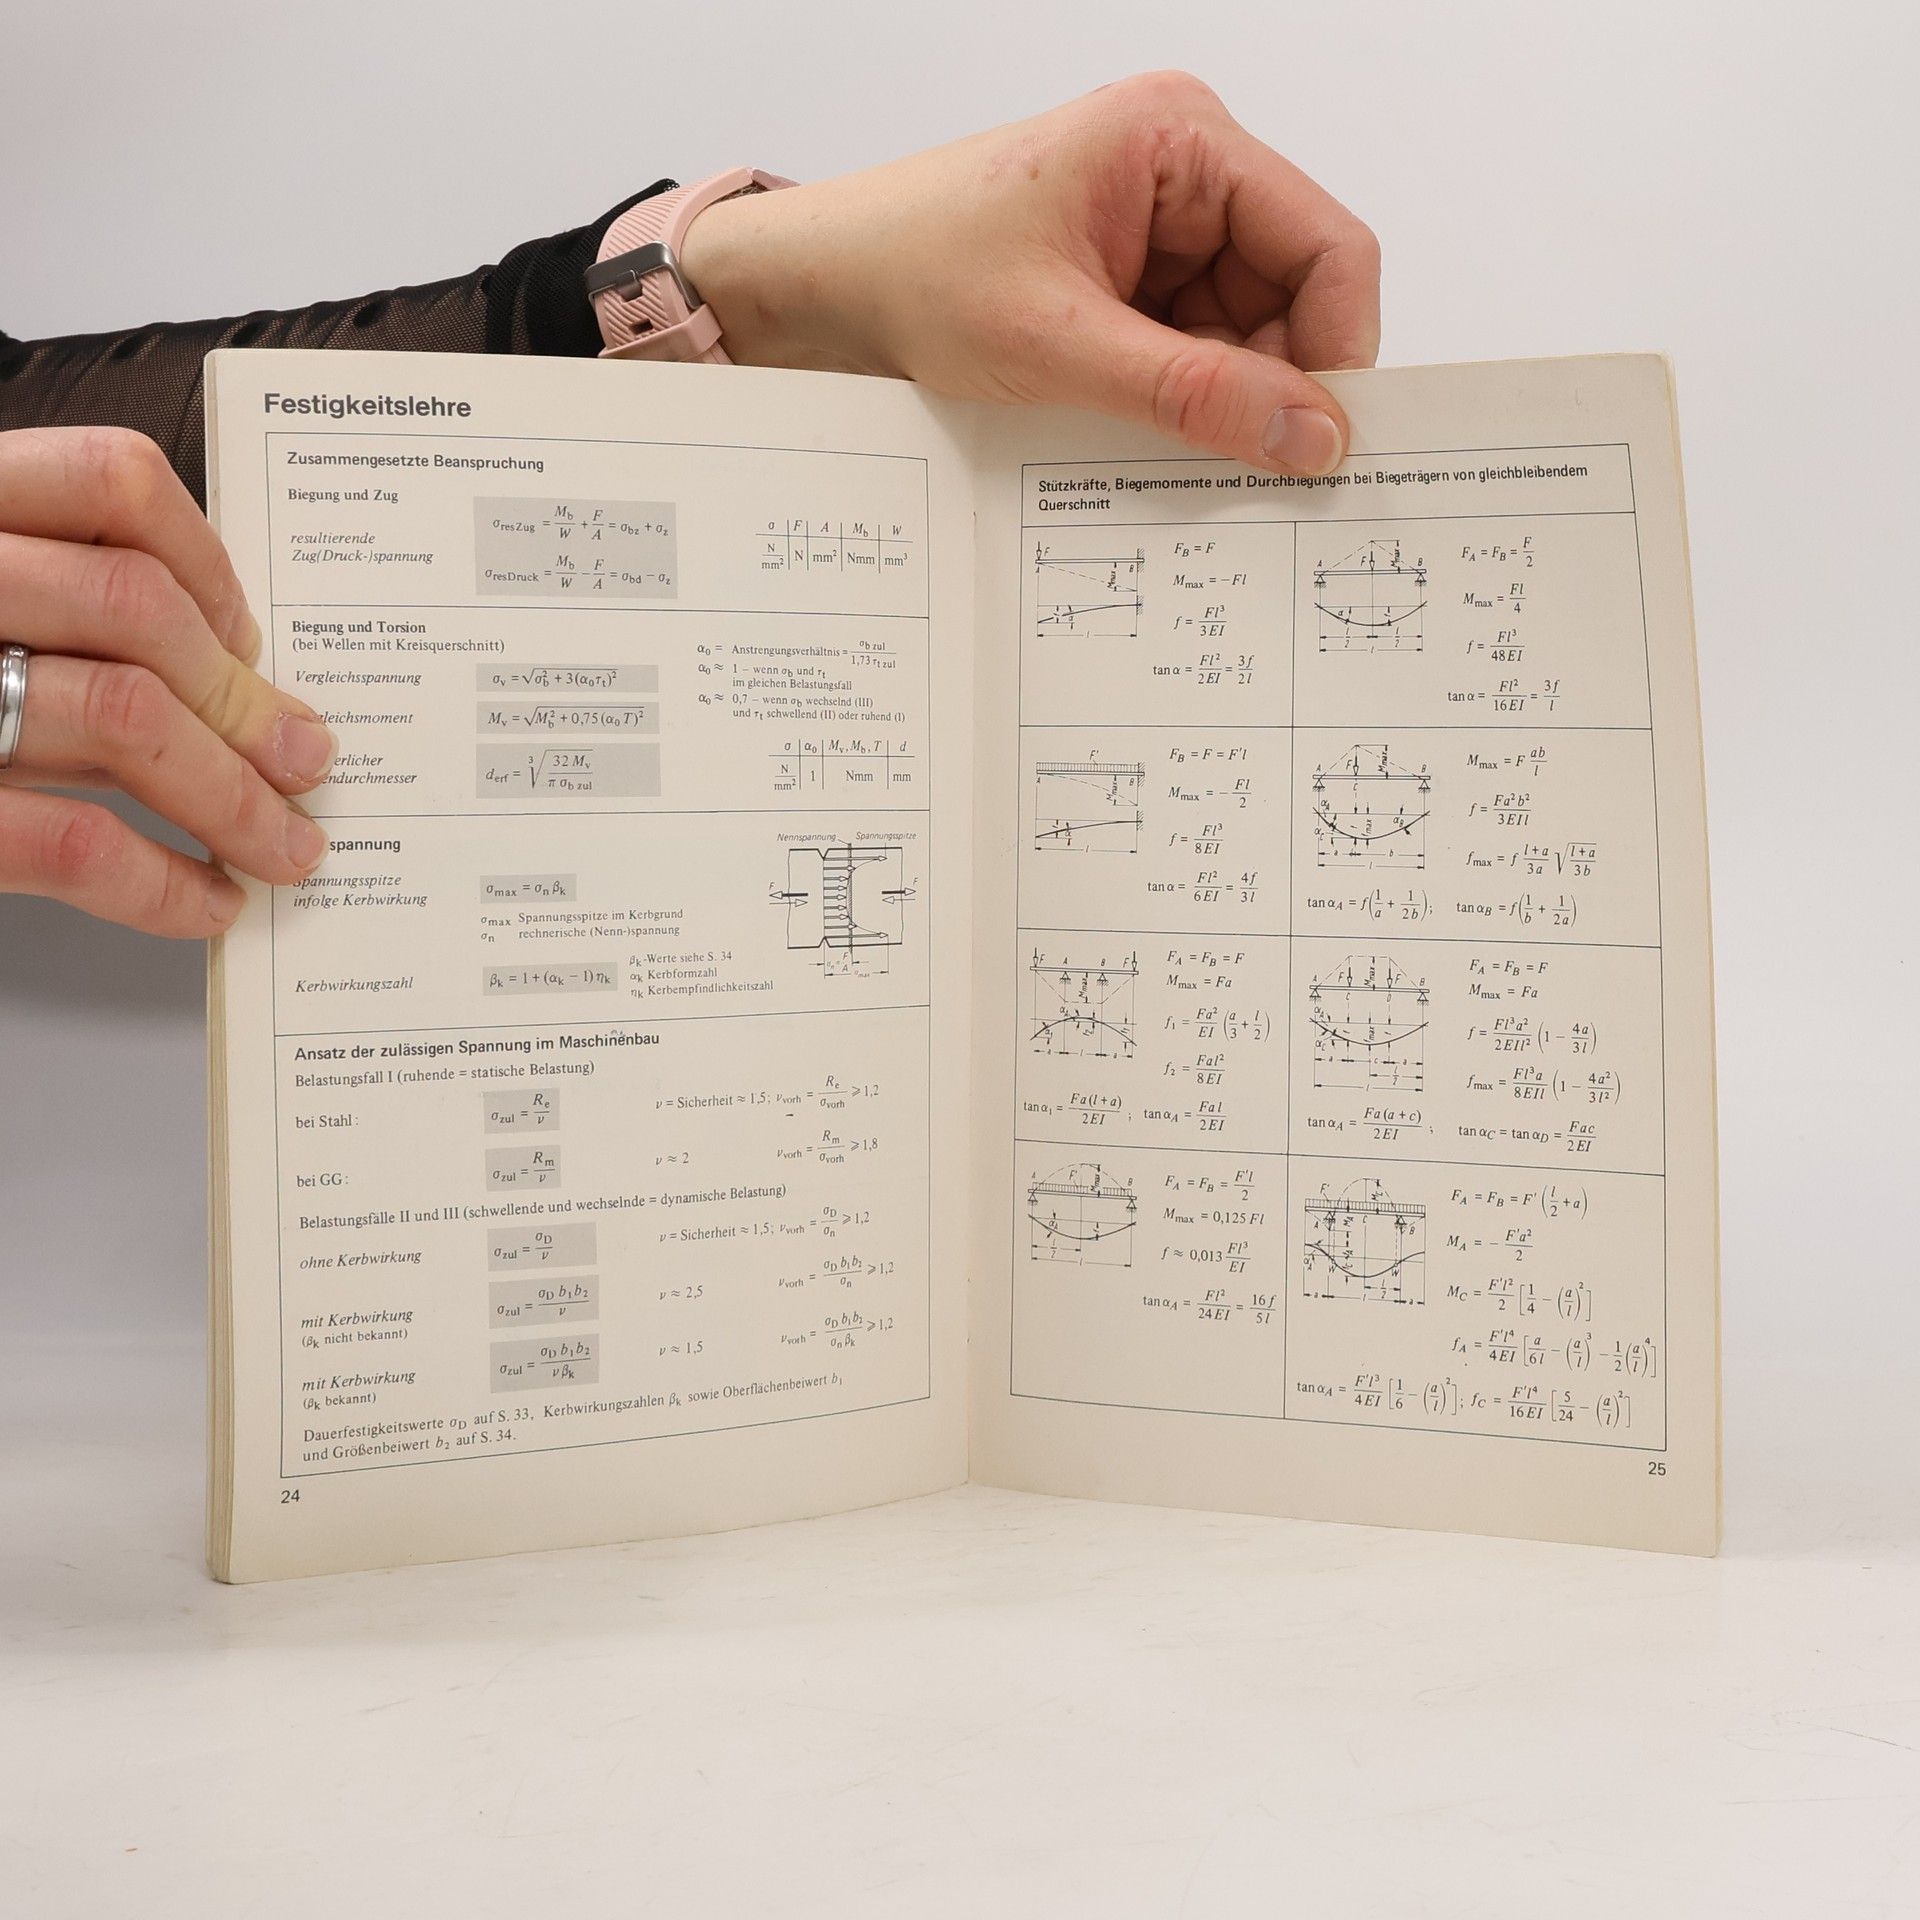 Festigkeitslehre
Zusammengesetzte Beanspruchung
Biegung und Zug
resultierende
Zug(Druck-)spannung
σ_resZug = M_b/W + F/A = σ_bz + σ_z
σ_resDruck = M_b/W − F/A = σ_bd − σ_z
σ | F | A | M_b | W
N/mm² | N | mm² | Nmm | mm³
Biegung und Torsion
(bei Wellen mit Kreisquerschnitt)
Vergleichsspannung σ_v = √(σ_b² + 3(α₀τ_t)²)
gleichsmoment M_v = √(M_b² + 0,75(α₀T)²)
erlicher
endurchmesser d_erf = ³√(32 M_v / π σ_b zul)
α₀ = Anstrengungsverhältnis = σ_b zul / 1,73 τ_t zul
α₀ ≈ 1 – wenn σ_b und τ_t
im gleichen Belastungsfall
α₀ ≈ 0,7 – wenn σ_b wechselnd (III)
und τ_t schwellend (II) oder ruhend (I)
σ | α₀ | M_v, M_b, T | d
N/mm² | 1 | Nmm | mm
spannung
Spannungsspitze
infolge Kerbwirkung
σ_max = σ_n β_k
σ_max Spannungsspitze im Kerbgrund
σ_n rechnerische (Nenn-)spannung
Kerbwirkungszahl β_k = 1 + (α_k − 1) η_k
β_k-Werte siehe S. 34
α_k Kerbformzahl
η_k Kerbempfindlichkeitszahl
Nennspannung Spannungsspitze
F F
σ_n = F/A
σ_max
Ansatz der zulässigen Spannung im Maschinenbau
Belastungsfall I (ruhende = statische Belastung)
bei Stahl: σ_zul = R_e/ν ν = Sicherheit ≈ 1,5; ν_vorh = R_e/σ_vorh ⩾ 1,2
bei GG: σ_zul = R_m/ν ν ≈ 2 ν_vorh = R_m/σ_vorh ⩾ 1,8
Belastungsfälle II und III (schwellende und wechselnde = dynamische Belastung)
ohne Kerbwirkung σ_zul = σ_D/ν ν = Sicherheit ≈ 1,5; ν_vorh = σ_D/σ_n ⩾ 1,2
mit Kerbwirkung σ_zul = σ_D b₁b₂/ν ν ≈ 2,5 ν_vorh = σ_D b₁b₂/σ_n ⩾ 1,2
(β_k nicht bekannt)
mit Kerbwirkung σ_zul = σ_D b₁b₂/ν β_k ν ≈ 1,5 ν_vorh = σ_D b₁b₂/σ_n β_k ⩾ 1,2
(β_k bekannt)
Dauerfestigkeitswerte σ_D auf S. 33, Kerbwirkungszahlen β_k sowie Oberflächenbeiwert b₁
und Größenbeiwert b₂ auf S. 34.
24
Stützkräfte, Biegemomente und Durchbiegungen bei Biegeträgern von gleichbleibendem
Querschnitt
F_B = F
M_max = −Fl
f = Fl³/3EI
tan α = Fl²/2EI = 3f/2l
F_A = F_B = F/2
M_max = Fl/4
f = Fl³/48EI
tan α = Fl²/16EI = 3f/l
F_B = F = F′l
M_max = − Fl/2
f = Fl³/8EI
tan α = Fl²/6EI = 4f/3l
M_max = F ab/l
f = Fa²b²/3EIl
f_max = f (l+a)/3a √((l+a)/3b)
tan α_A = f(1/a + 1/2b); tan α_B = f(1/b + 1/2a)
F_A = F_B = F
M_max = Fa
f₁ = Fa²/EI (a/3 + l/2)
f₂ = Fal²/8EI
tan α₁ = Fa(l+a)/2EI; tan α_A = Fal/2EI
F_A = F_B = F
M_max = Fa
f = Fl³a²/2EIl² (1 − 4a/3l)
f_max = Fl³a/8EIl (1 − 4a²/3l²)
tan α_A = Fa(a+c)/2EI; tan α_C = tan α_D = Fac/2EI
F_A = F_B = F′l/2
M_max = 0,125 Fl
f ≈ 0,013 Fl³/EI
tan α_A = Fl²/24EI = 16f/5l
F_A = F_B = F′(l/2 + a)
M_A = − F′a²/2
M_C = F′l²/2 [1/4 − (a/l)²]
f_A = F′l⁴/4EI [a/6l − (a/l)³ − 1/2(a/l)⁴]
tan α_A = F′l³/4EI [1/6 − (a/l)²]; f_C = F′l⁴/16EI [5/24 − (a/l)²]
25